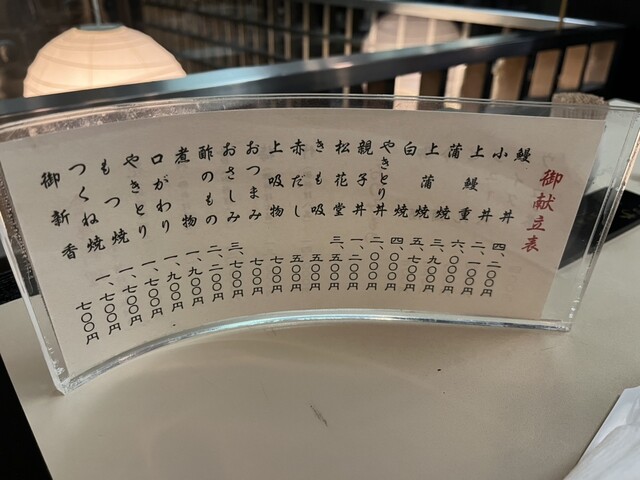 御献立表
鰻丼 四、二〇〇円
小丼 二、一〇〇円
上鰻重 六、〇〇〇円
蒲焼 三、九〇〇円
上蒲焼 五、七〇〇円
白焼 四、〇〇〇円
やきとり丼 二、〇〇〇円
親子丼 一、二〇〇円
松花堂 三、五〇〇円
きも吸 五〇〇円
赤だし 五〇〇円
上吸物 七〇〇円
おつまみ 七〇〇円
おさしみ 三、七〇〇円
酢のもの 二、二〇〇円
煮物 一、九〇〇円
口がわり 一、九〇〇円
やきとり 一、七〇〇円
もつ焼 一、七〇〇円
つくね焼 一、七〇〇円
御新香 七〇〇円